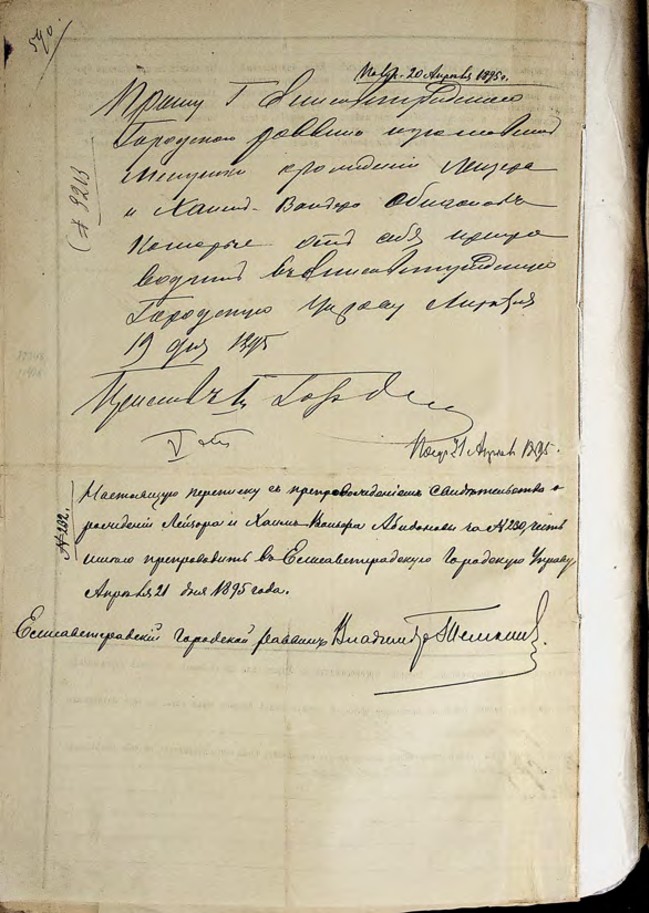 590.
Получ. 20 Апрѣля 1895 г.
Прошу Г. Елисаветградскаго
Городскаго раввина
о рожденіи Лейзера
и Хаима-Вольфа Абигоновъ
которые отъ себя препро
водить въ Елисаветградскую
Городскую Управу Апрѣля
19 дня 1895
(№ 3213
Приставъ
Получ. 21 Апрѣля 1895.
№ 232.
Настоящую переписку съ препровожденіемъ свидѣтельства о
рожденіи Лейзора и Хаима-Вольфа Абидоновы за № 230, честь
имѣю препроводить въ Елисаветградскую Городскую Управу,
Апрѣля 21 дня 1895 года.
Елисаветградскій Городской раввинъ Владиміръ Темкинъ